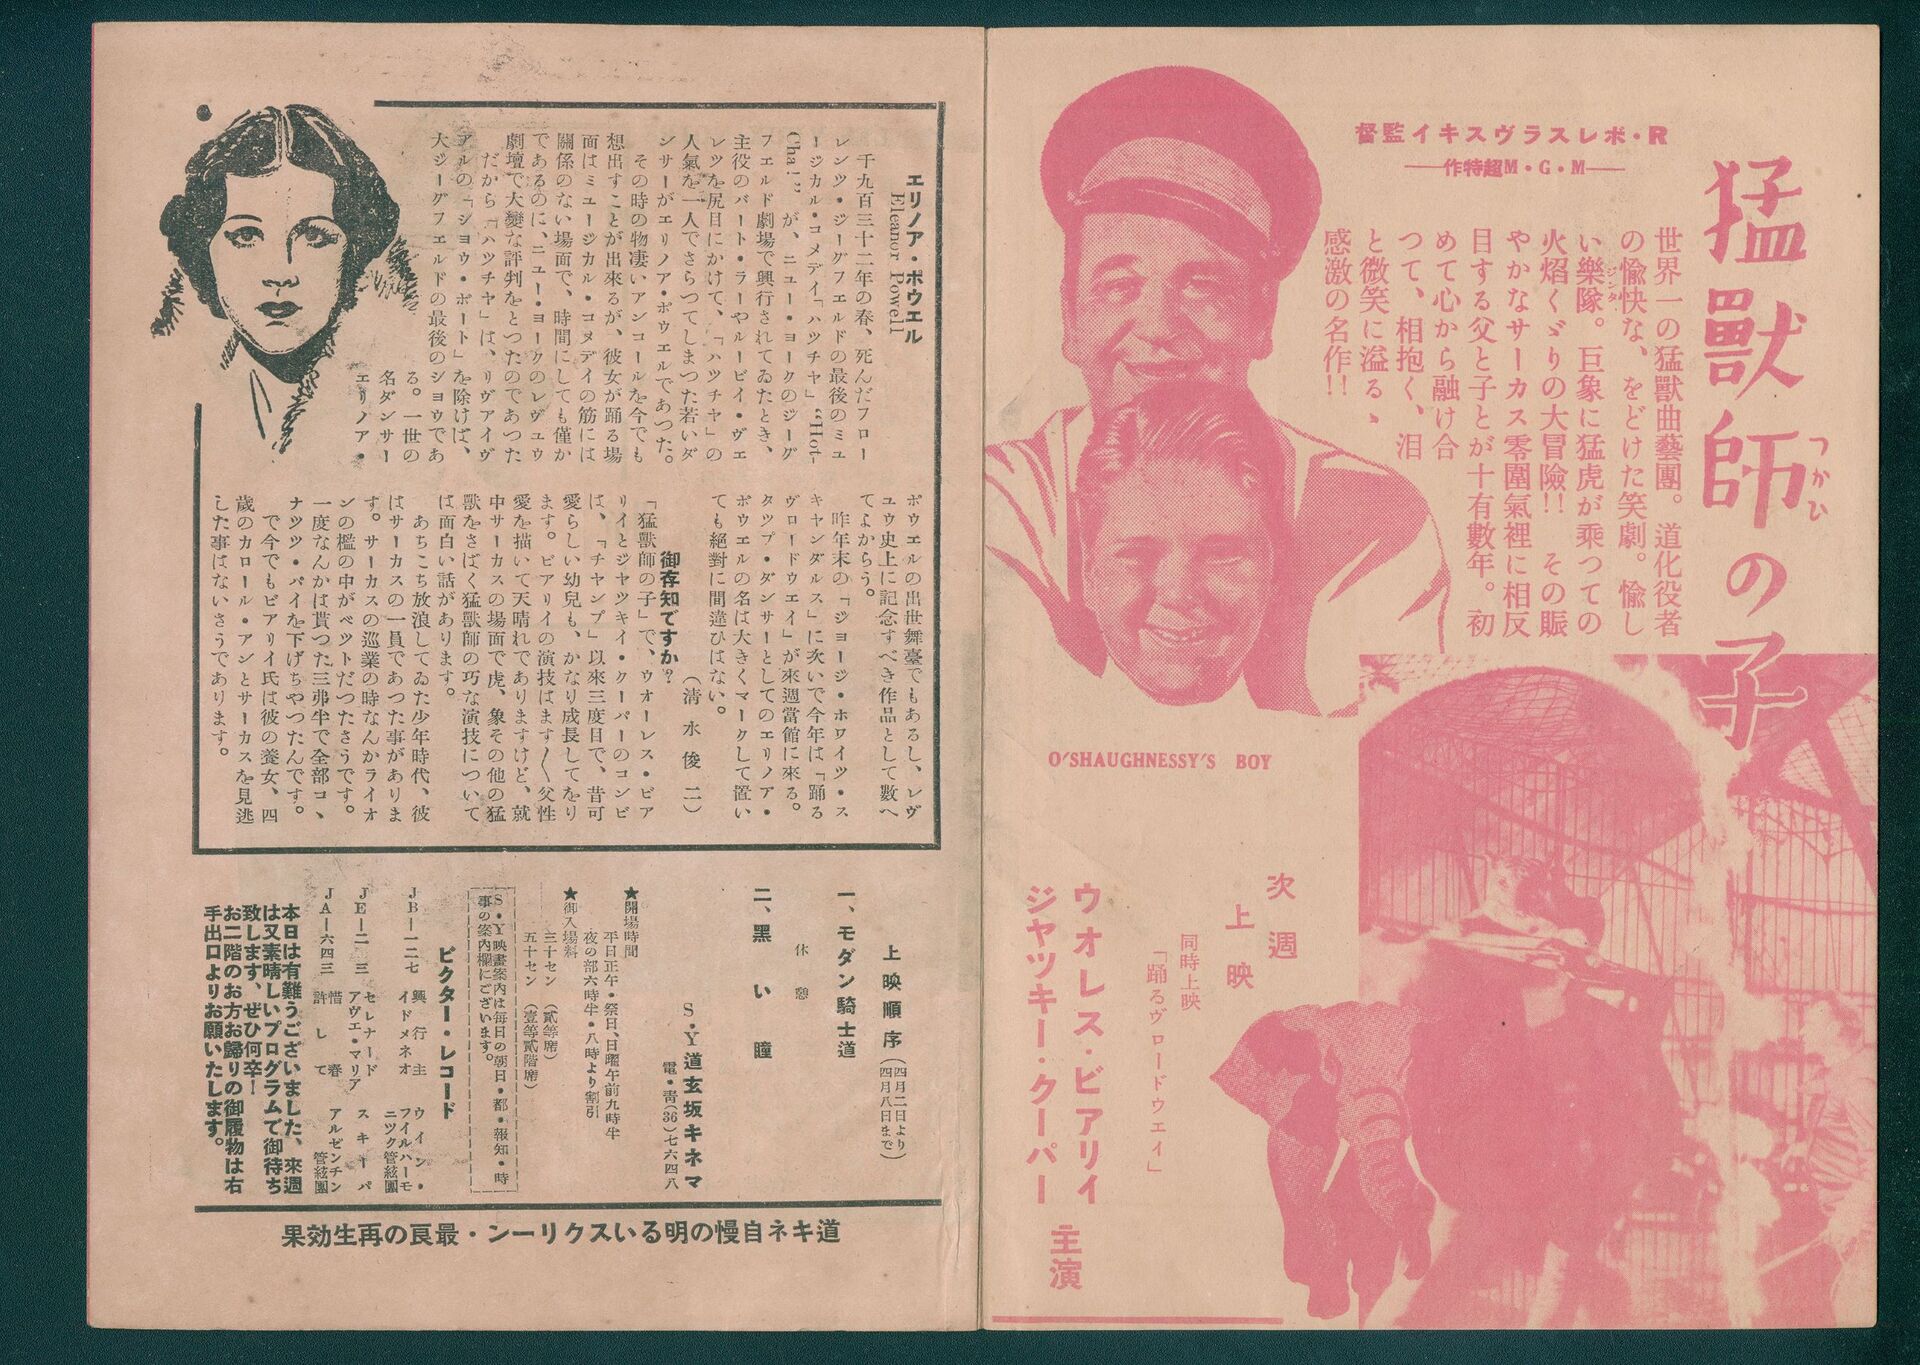 猛獸師の子
つかひ
督監イキスヴラスレボ・R
――作特超M・G・M――
世界一の猛獸曲藝團。道化役者
の愉快な、をどけた笑劇。愉し
い樂隊。巨象に猛虎が乘つての
ジンタ
火焰くゞりの大冒險!!　その賑
やかなサーカス雰圍氣裡に相反
目する父と子とが十有數年。初
めて心から融け合
つて、相抱く、淚
と微笑に溢る、
感激の名作!!
O'SHAUGHNESSY'S BOY
次週
上映
同時上映
「踊るヴロードウエイ」
ウオレス・ビアリイ
ジヤツキー・クーパー
主演
エリノア・ポウエル
Eleanor Powell
千九百三十二年の春、死んだフロー
レンツ・ジーグフエルドの最後のミユ
ージカル・コメデイ「ハツチヤ」“Hot-
Cha!”が、ニュー・ヨークのジーグ
フエルド劇場で興行されてゐたとき、
主役のバート・ラーやルーピイ・ヴエ
レツを尻目にかけて、「ハツチヤ」の
人氣を一人でさらつてしまつた若いダ
ンサーがエリノア・ポウエルであつた。
その時の物凄いアンコールを今でも
想出すことが出來るが、彼女が踊る場
面はミユージカル・コメデイの筋には
關係のない場面で、時間にしても僅か
であるのに、ニュー・ヨークのレヴユウ
劇壇で大變な評判をとつたのであつた
だから「ハツチヤ」は、リヴアイヴ
アルの「シヨウ・ボート」を除けば、
大ジーグフエルドの最後のシヨウであ
る。一世の
名ダンサー
エリノア・
ポウエルの出世舞臺でもあるし、レヴ
ユウ史上に記念すべき作品として數へ
てよからう。
昨年末の「ジヨージ・ホワイツ・ス
キヤンダルス」に次いで今年は「踊る
ヴロードウエイ」が來週當館に來る。
タツプ・ダンサーとしてのエリノア・
ポウエルの名は大きくマークして置い
ても絕對に間違ひはない。
（淸水俊二）
御存知ですか？
「猛獸師の子」で、ウオーレス・ビア
リイとジヤツキイ・クーパーのコンビ
は、「チヤンプ」以來三度目で、昔可
愛らしい幼兒も、かなり成長してをり
ます。ビアリイの演技はます〱父性
愛を描いて天晴れでありますけど、就
中サーカスの場面で虎、象その他の猛
獸をさばく猛獸師の巧な演技について
は面白い話があります。
あちこち放浪してゐた少年時代、彼
はサーカスの一員であつた事がありま
す。サーカスの巡業の時なんかライオ
ンの檻の中がベツトだつたさうです。
一度なんかは貰つた三弗半で全部コヽ
ナツツ・パイを下げちやつたんです。
で今でもビアリイ氏は彼の養女、四
歲のカロール・アンとサーカスを見逃
した事はないさうであります。
上映順序（四月二日より
四月八日まで）
一、モダン騎士道
休憩
二、黑い瞳
S・Y道玄坂キネマ
電・靑(36)七六四八
★開場時間
平日正午・祭日、日曜午前九時半
夜の部六時半・八時より割引
★御入場料
三十セン（貳等席）
五十セン（壹等貳階席）
S・Y映畫案內は每日の朝日・都・報知・時
事の案內欄にございます。
ビクター・レコード
JB―一二七　興行主　ウイン・
イドメネオ　フイルハーモ
ニツク管絃團
JE―二三　セレナード　スキーパ
アヴエ・マリア
JA―六四三　惜春　アルゼンチン
許して　管絃團
本日は有難うございました、來週
は又素晴しいプログラムで御待ち
致します、ぜひ何卒！
お二階のお方お歸りの御履物は右
手出口よりお願いたします。
果効生再の良最・ンーリクスいる明の慢自ネキ道